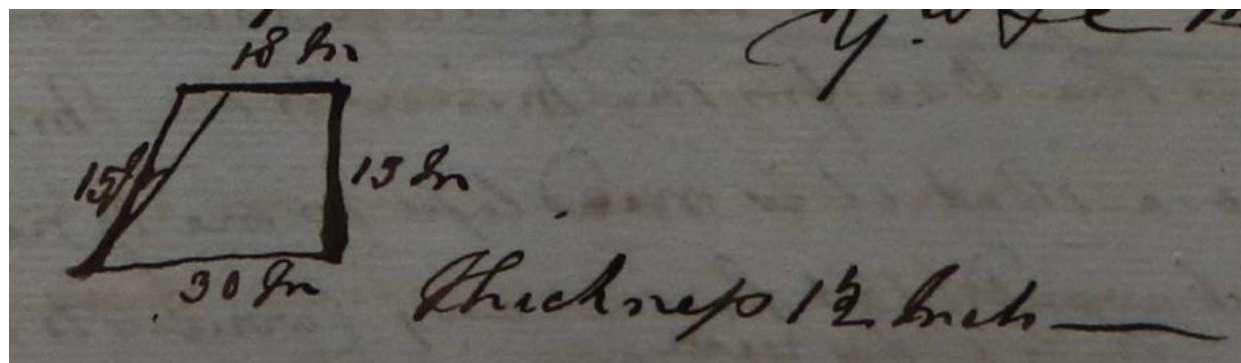 18 In
15 In
15 In
30 In
thickness 1½ Inch